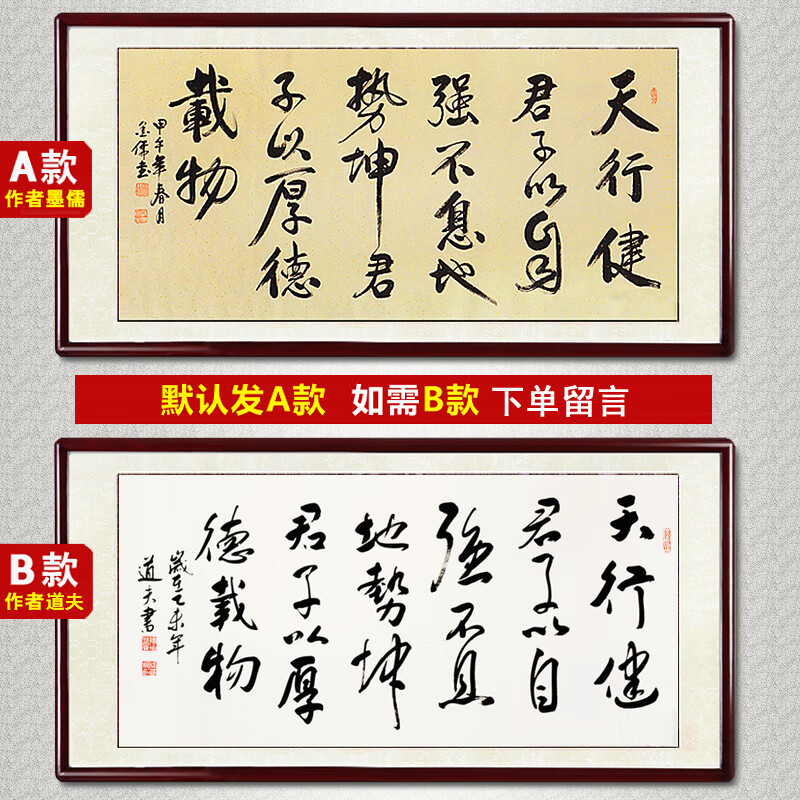 天行健
君子以自
强不息地
势坤君
子以厚德
載物
甲午年春月
墨儒书
A款
作者墨儒
默认发A款 如需B款 下单留言
天行健
君子以自
强不息
地勢坤
君子以厚
德載物
歲在乙未年
道夫書
B款
作者道夫